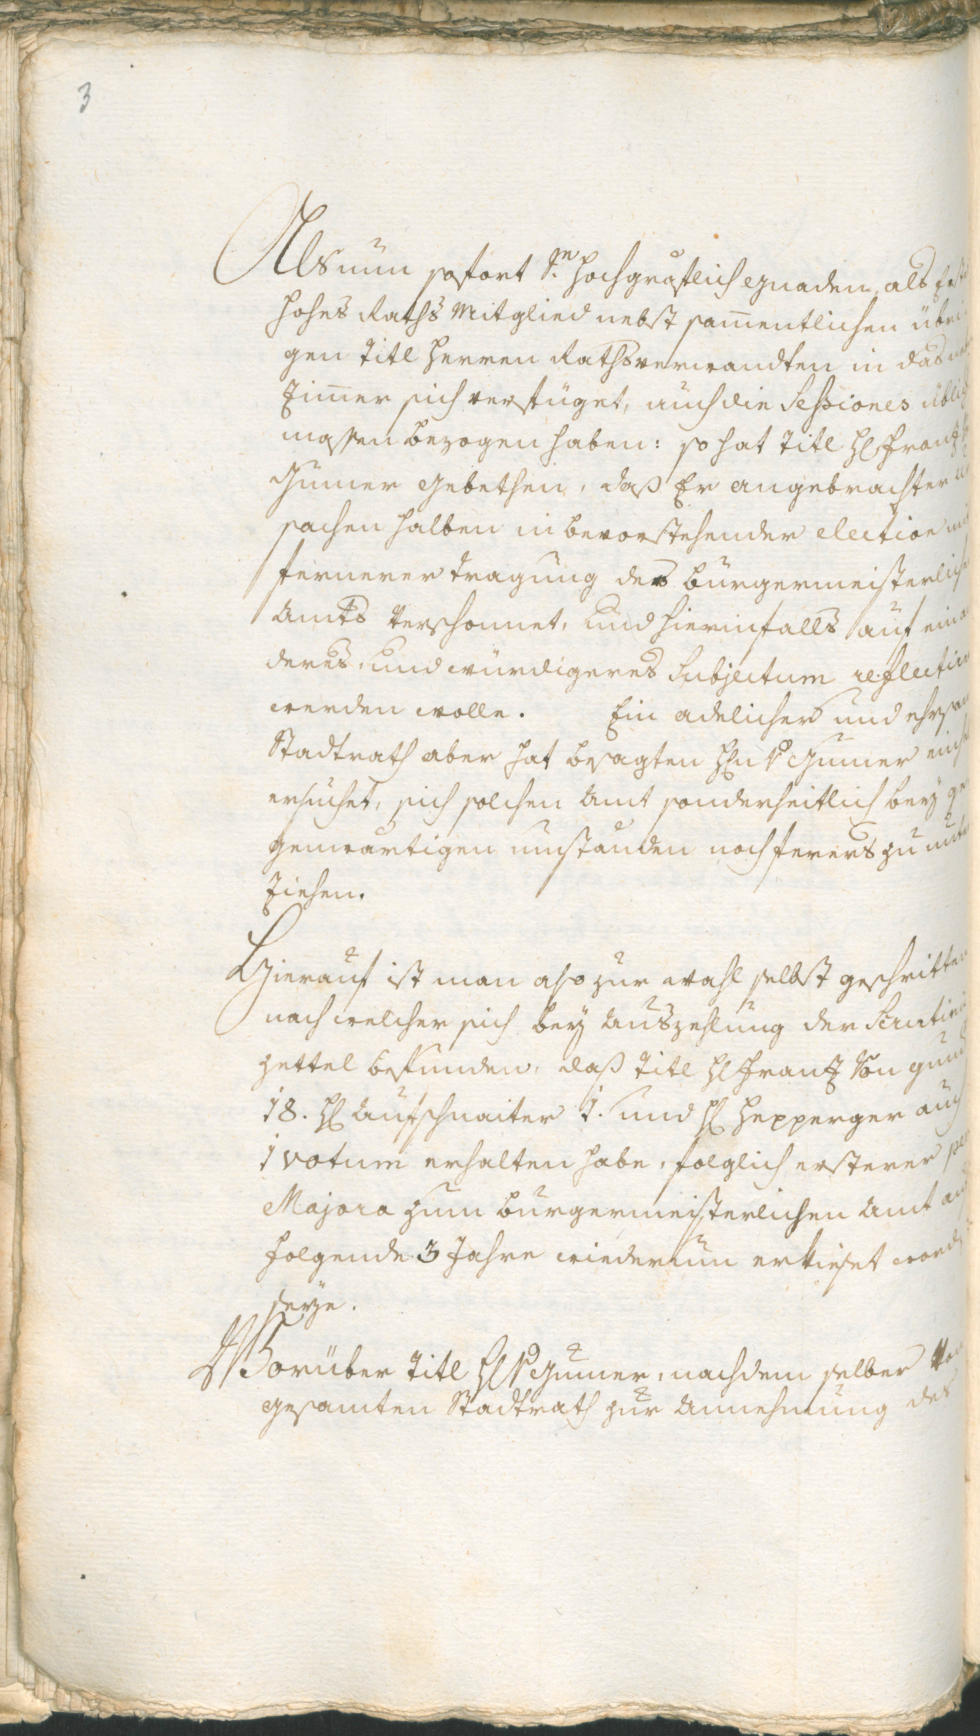 3
Als nun sofort Sr. hochgräflich Gnaden, als
hohes Raths Mitglied nebst sam̄entlichen übri
gen Titl Herren Rathsverwandten in das
Zim̄er sich verfüget, auch die Sessiones üblich
massen bezogen haben: so hat Titl H. Frantz
Gumer gebethen, daß Er angebrachter
sachen halben in bevorstehender election
fernerer tragung des burgermeisterlich
Amts verschonnet, und hierinfalls auf ein
deres, und würdigeres Subjectum reflectirt
werden wolle. Ein adelicher und ehrsa
Stadtrath aber hat besagten Hn v Gumer
ersuchet, sich solchen Amt sonderheitlich bey ge
genwärtigen umständen noch ferers zu unter
ziehen.
Hierauf ist man also zur wahl selbst geschritten
nach welcher sich bey Auszehlung der Scrutini
zettel befunden, daß Titl H. Frantz von Gum
18. H. Aufschnaiter 1. und H. Hepperger auch
1 votum erhalten habe, folglich ersterer per
Majora zum burgermeisterlichen Amt auf
folgende 3 Jahre wiederum erkieset word
seye.
Worüber Titl H. v Gumer, nachdem selber von
gesamten Stadtrath zur Annehmung des